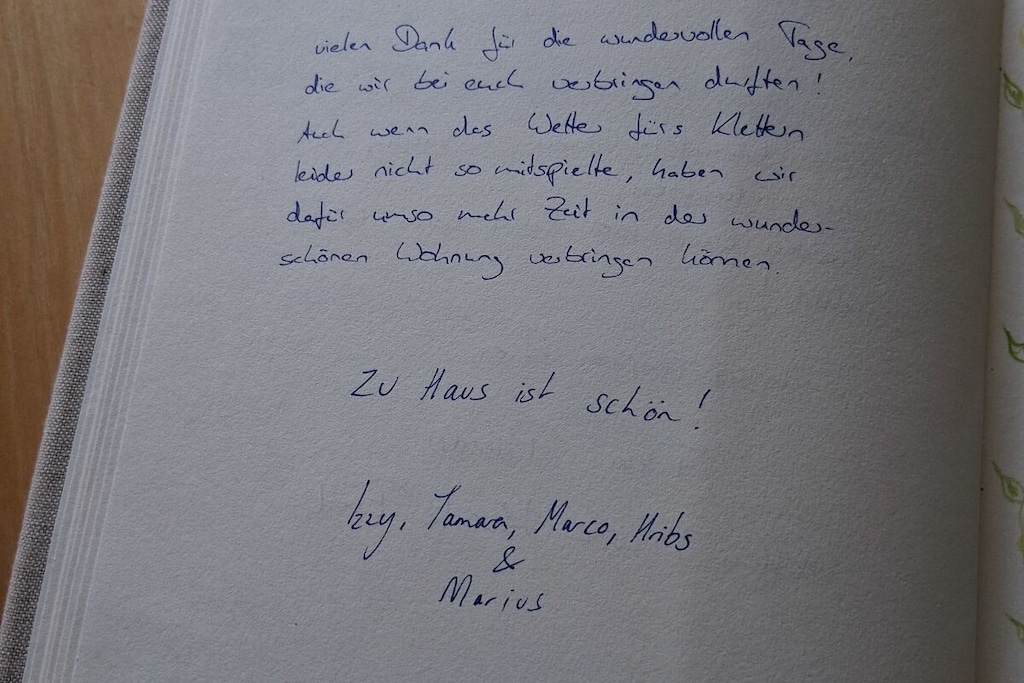 vielen Dank für die wundervollen Tage,
die wir bei euch verbringen durften!
Auch wenn das Wetter fürs Klettern
leider nicht so mitspielte, haben wir
dafür umso mehr Zeit in der wunder-
schönen Wohnung verbringen können.
Zu Haus ist schön!
Izzy, Tamara, Marco, Hribs
&
Marius